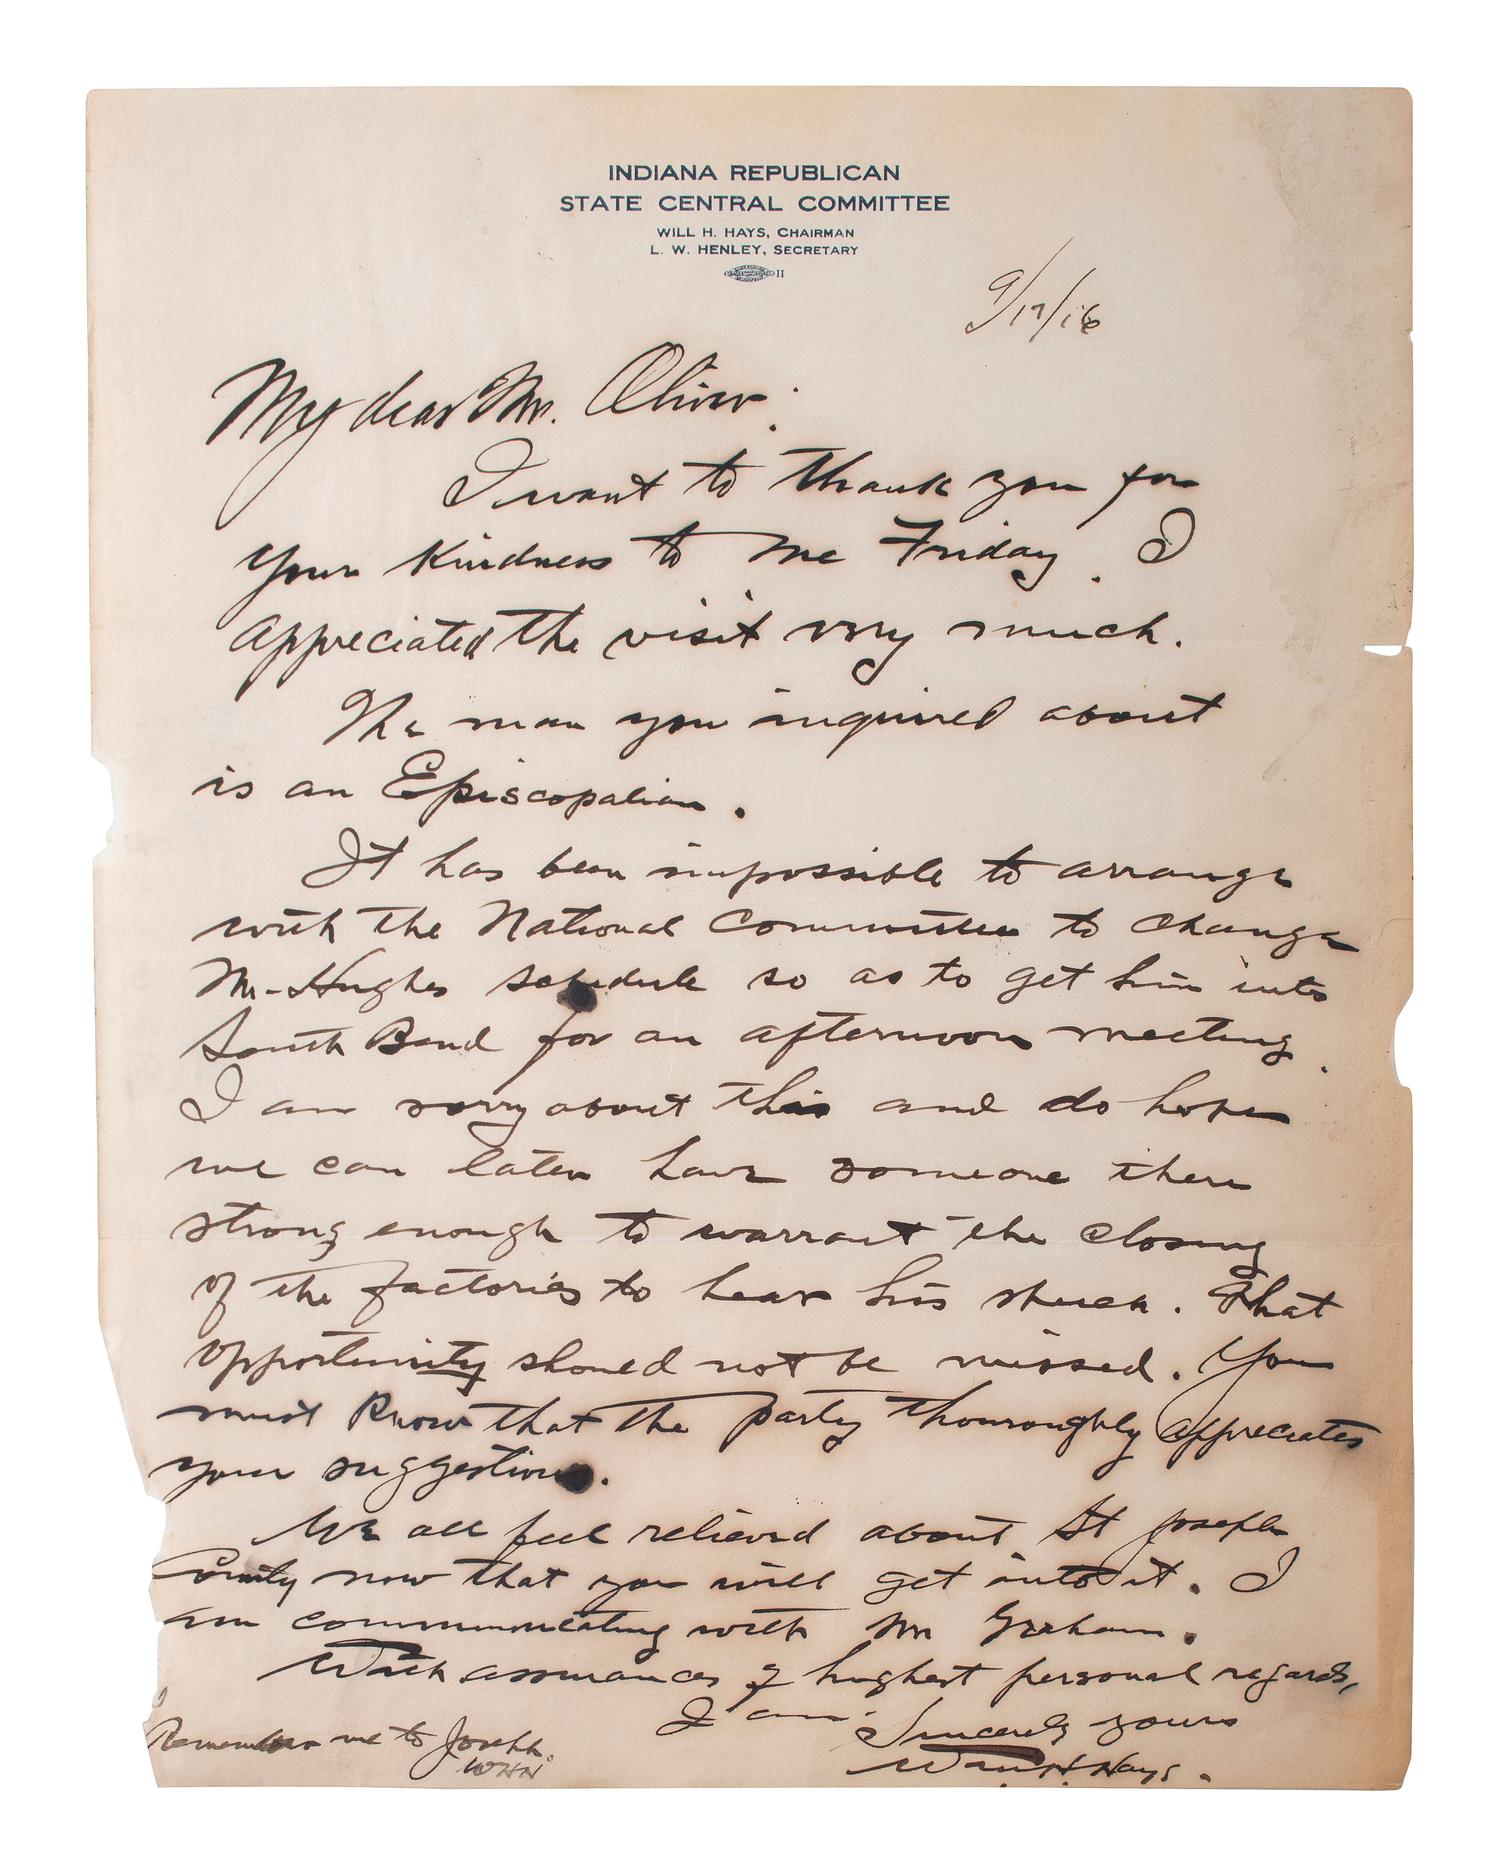 INDIANA REPUBLICAN
STATE CENTRAL COMMITTEE
WILL H. HAYS, CHAIRMAN
L. W. HENLEY, SECRETARY
11
9/17/16
My dear Mr. Oliver:
I want to thank you for
your kindness to me Friday. I
appreciated the visit very much.
The man you inquired about
is an Episcopalian.
It has been impossible to arrange
with the National Committee to change
Mr. Hughes schedule so as to get him into
South Bend for an afternoon meeting.
I am sorry about this and do hope
we can later have someone there
strong enough to warrant the closing
of the factories to hear his speech. That
opportunity should not be missed. You
must know that the party thouroughly appreciates
your suggestions.
We all feel relieved about St Joseph
County now that you will get into it. I
am communicating with Mr Graham.
With assurances of highest personal regards,
I am Sincerely yours
Will H. Hays.
Remember me to Joseph.
WHH